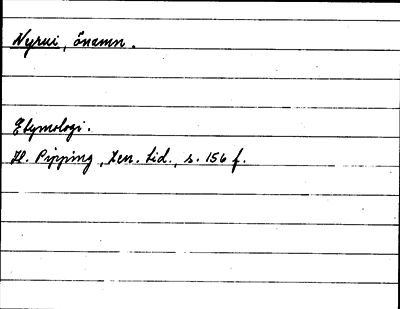 Nyrui, önamn.
Etymologi.
H. Pipping, Xen. Lid., s. 156 f.